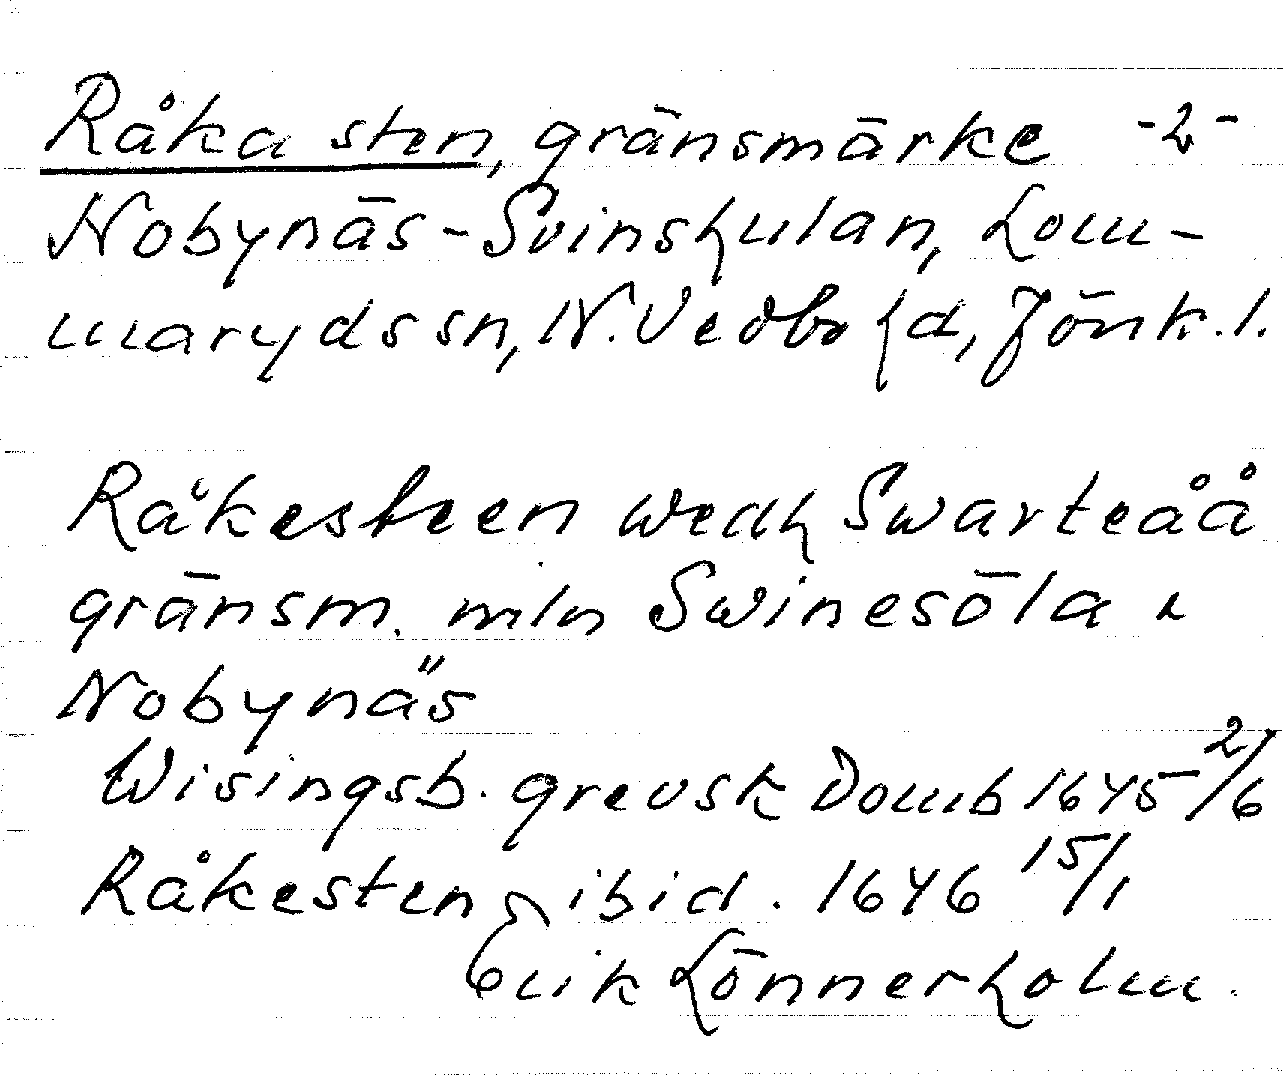 Råka sten, gränsmärke -2-
Nobynäs-Svinhulan, Lom-
maryds sn, N. Vedbo hd, Jönk. l.
Råkesteen wedh Swarteåå
gränsm. mln Swinesöla &
Nobynäs
Wisingsb. grevsk Domb 1645 2/6
Råkesten, ibid. 1646 15/1
Erik Lönnerholm.